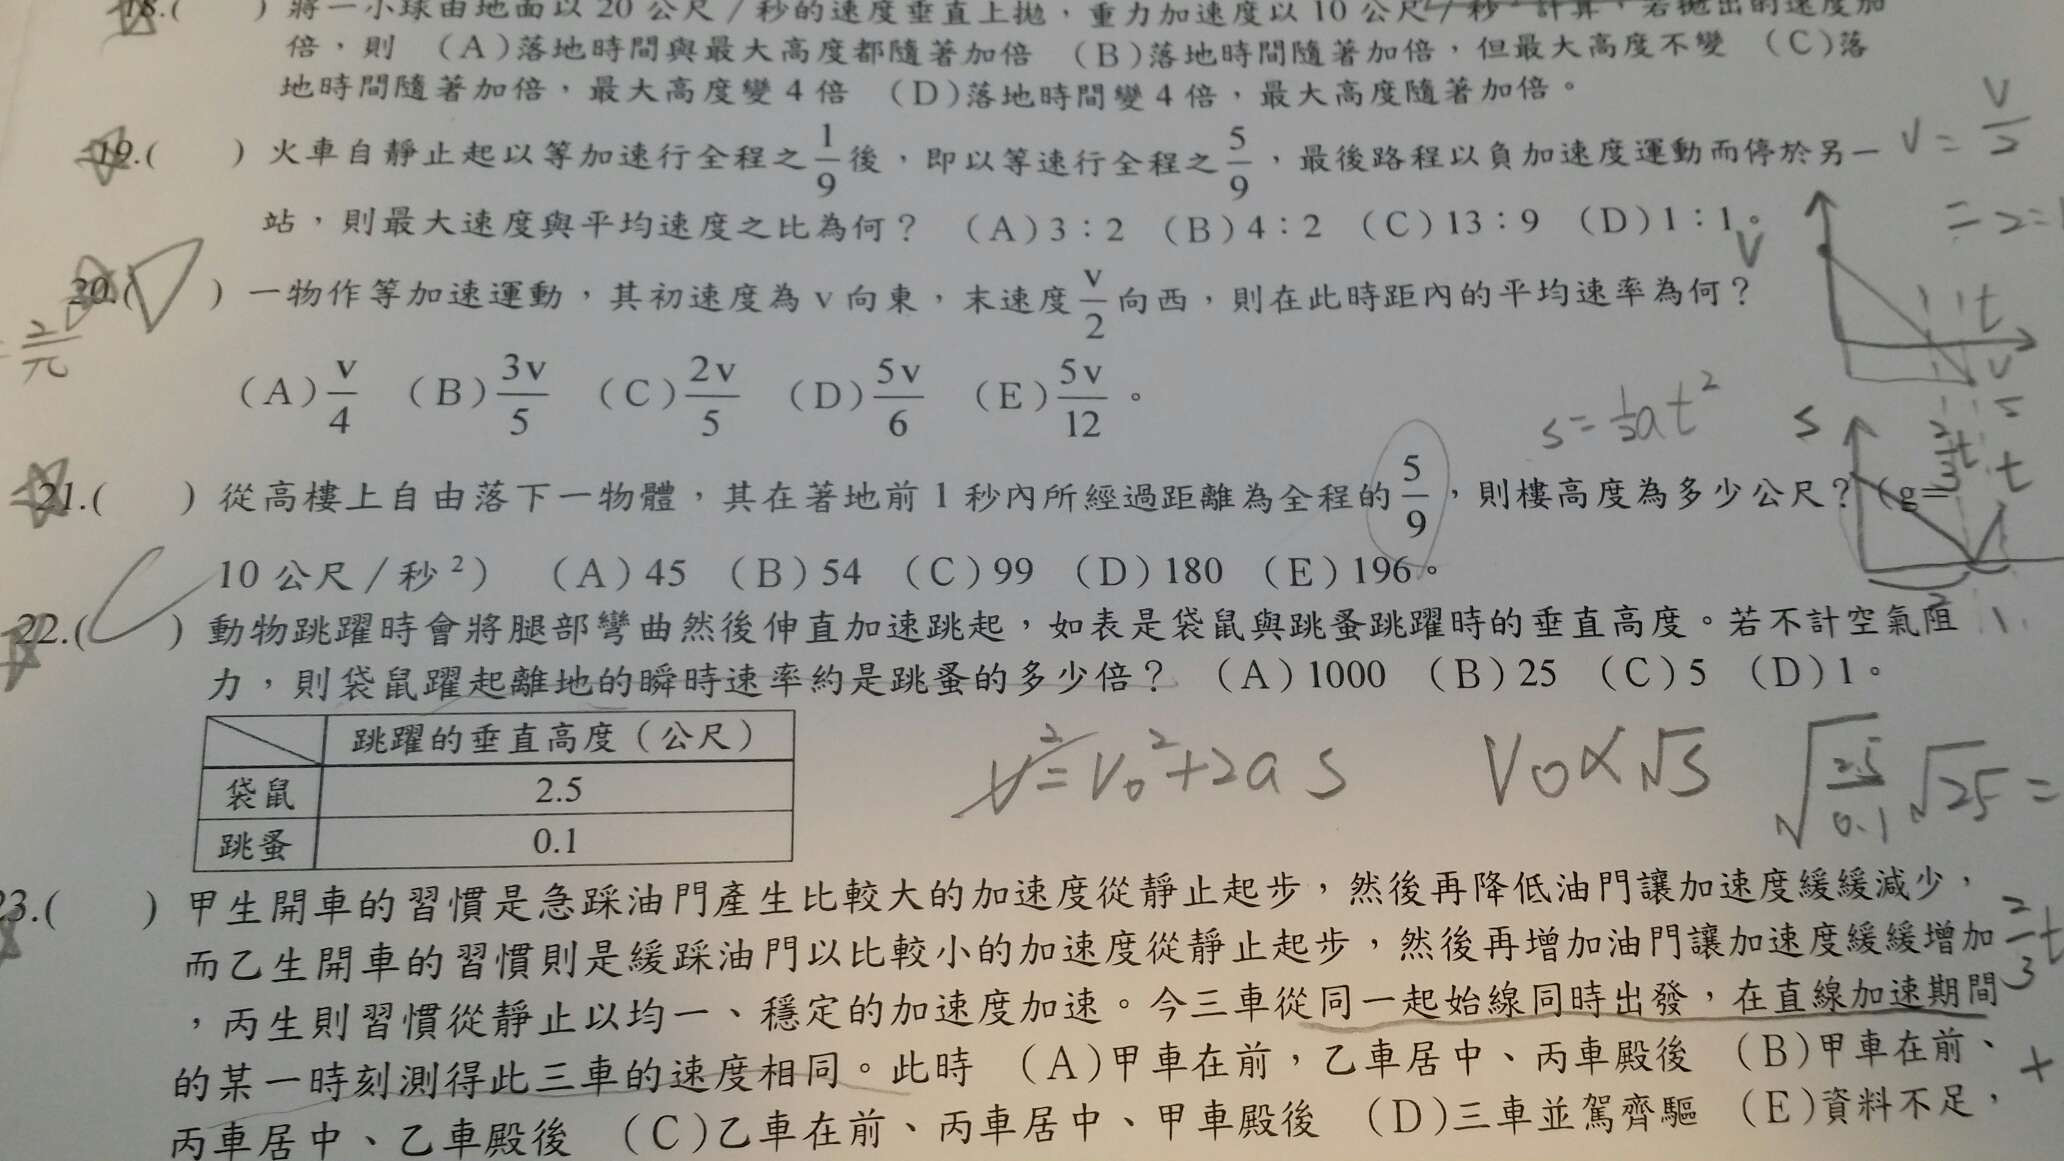 18.(　) 將一小球由地面以 20 公尺／秒的速度垂直上拋，重力加速度以 10 公尺／秒² 計算，若拋出的速度加
倍，則 (A)落地時間與最大高度都隨著加倍 (B)落地時間隨著加倍，但最大高度不變 (C)落
地時間隨著加倍，最大高度變 4 倍 (D)落地時間變 4 倍，最大高度隨著加倍。
19.(　) 火車自靜止起以等加速行全程之 1/9 後，即以等速行全程之 5/9，最後路程以負加速度運動而停於另一
站，則最大速度與平均速度之比為何？ (A)3：2 (B)4：2 (C)13：9 (D)1：1。
20.(　) 一物作等加速運動，其初速度為 v 向東，末速度 v/2 向西，則在此時距內的平均速率為何？
(A) v/4 (B) 3v/5 (C) 2v/5 (D) 5v/6 (E) 5v/12 。
21.(　) 從高樓上自由落下一物體，其在著地前 1 秒內所經過距離為全程的 5/9，則樓高度為多少公尺？（g＝
10 公尺／秒²） (A)45 (B)54 (C)99 (D)180 (E)196。
22.(　) 動物跳躍時會將腿部彎曲然後伸直加速跳起，如表是袋鼠與跳蚤跳躍時的垂直高度。若不計空氣阻
力，則袋鼠躍起離地的瞬時速率約是跳蚤的多少倍？ (A)1000 (B)25 (C)5 (D)1。
跳躍的垂直高度（公尺）
袋鼠 2.5
跳蚤 0.1
23.(　) 甲生開車的習慣是急踩油門產生比較大的加速度從靜止起步，然後再降低油門讓加速度緩緩減少，
而乙生開車的習慣則是緩踩油門以比較小的加速度從靜止起步，然後再增加油門讓加速度緩緩增加
，丙生則習慣從靜止以均一、穩定的加速度加速。今三車從同一起始線同時出發，在直線加速期間
的某一時刻測得此三車的速度相同。此時 (A)甲車在前，乙車居中、丙車殿後 (B)甲車在前、
丙車居中、乙車殿後 (C)乙車在前、丙車居中、甲車殿後 (D)三車並駕齊驅 (E)資料不足，
v = v/2
V
t
2/π
s = ½at²
S
t
2/3 t
v² = v₀² + 2as
V₀ ∝ √s
√(2.5/0.1) √25 =
2/3 t
+